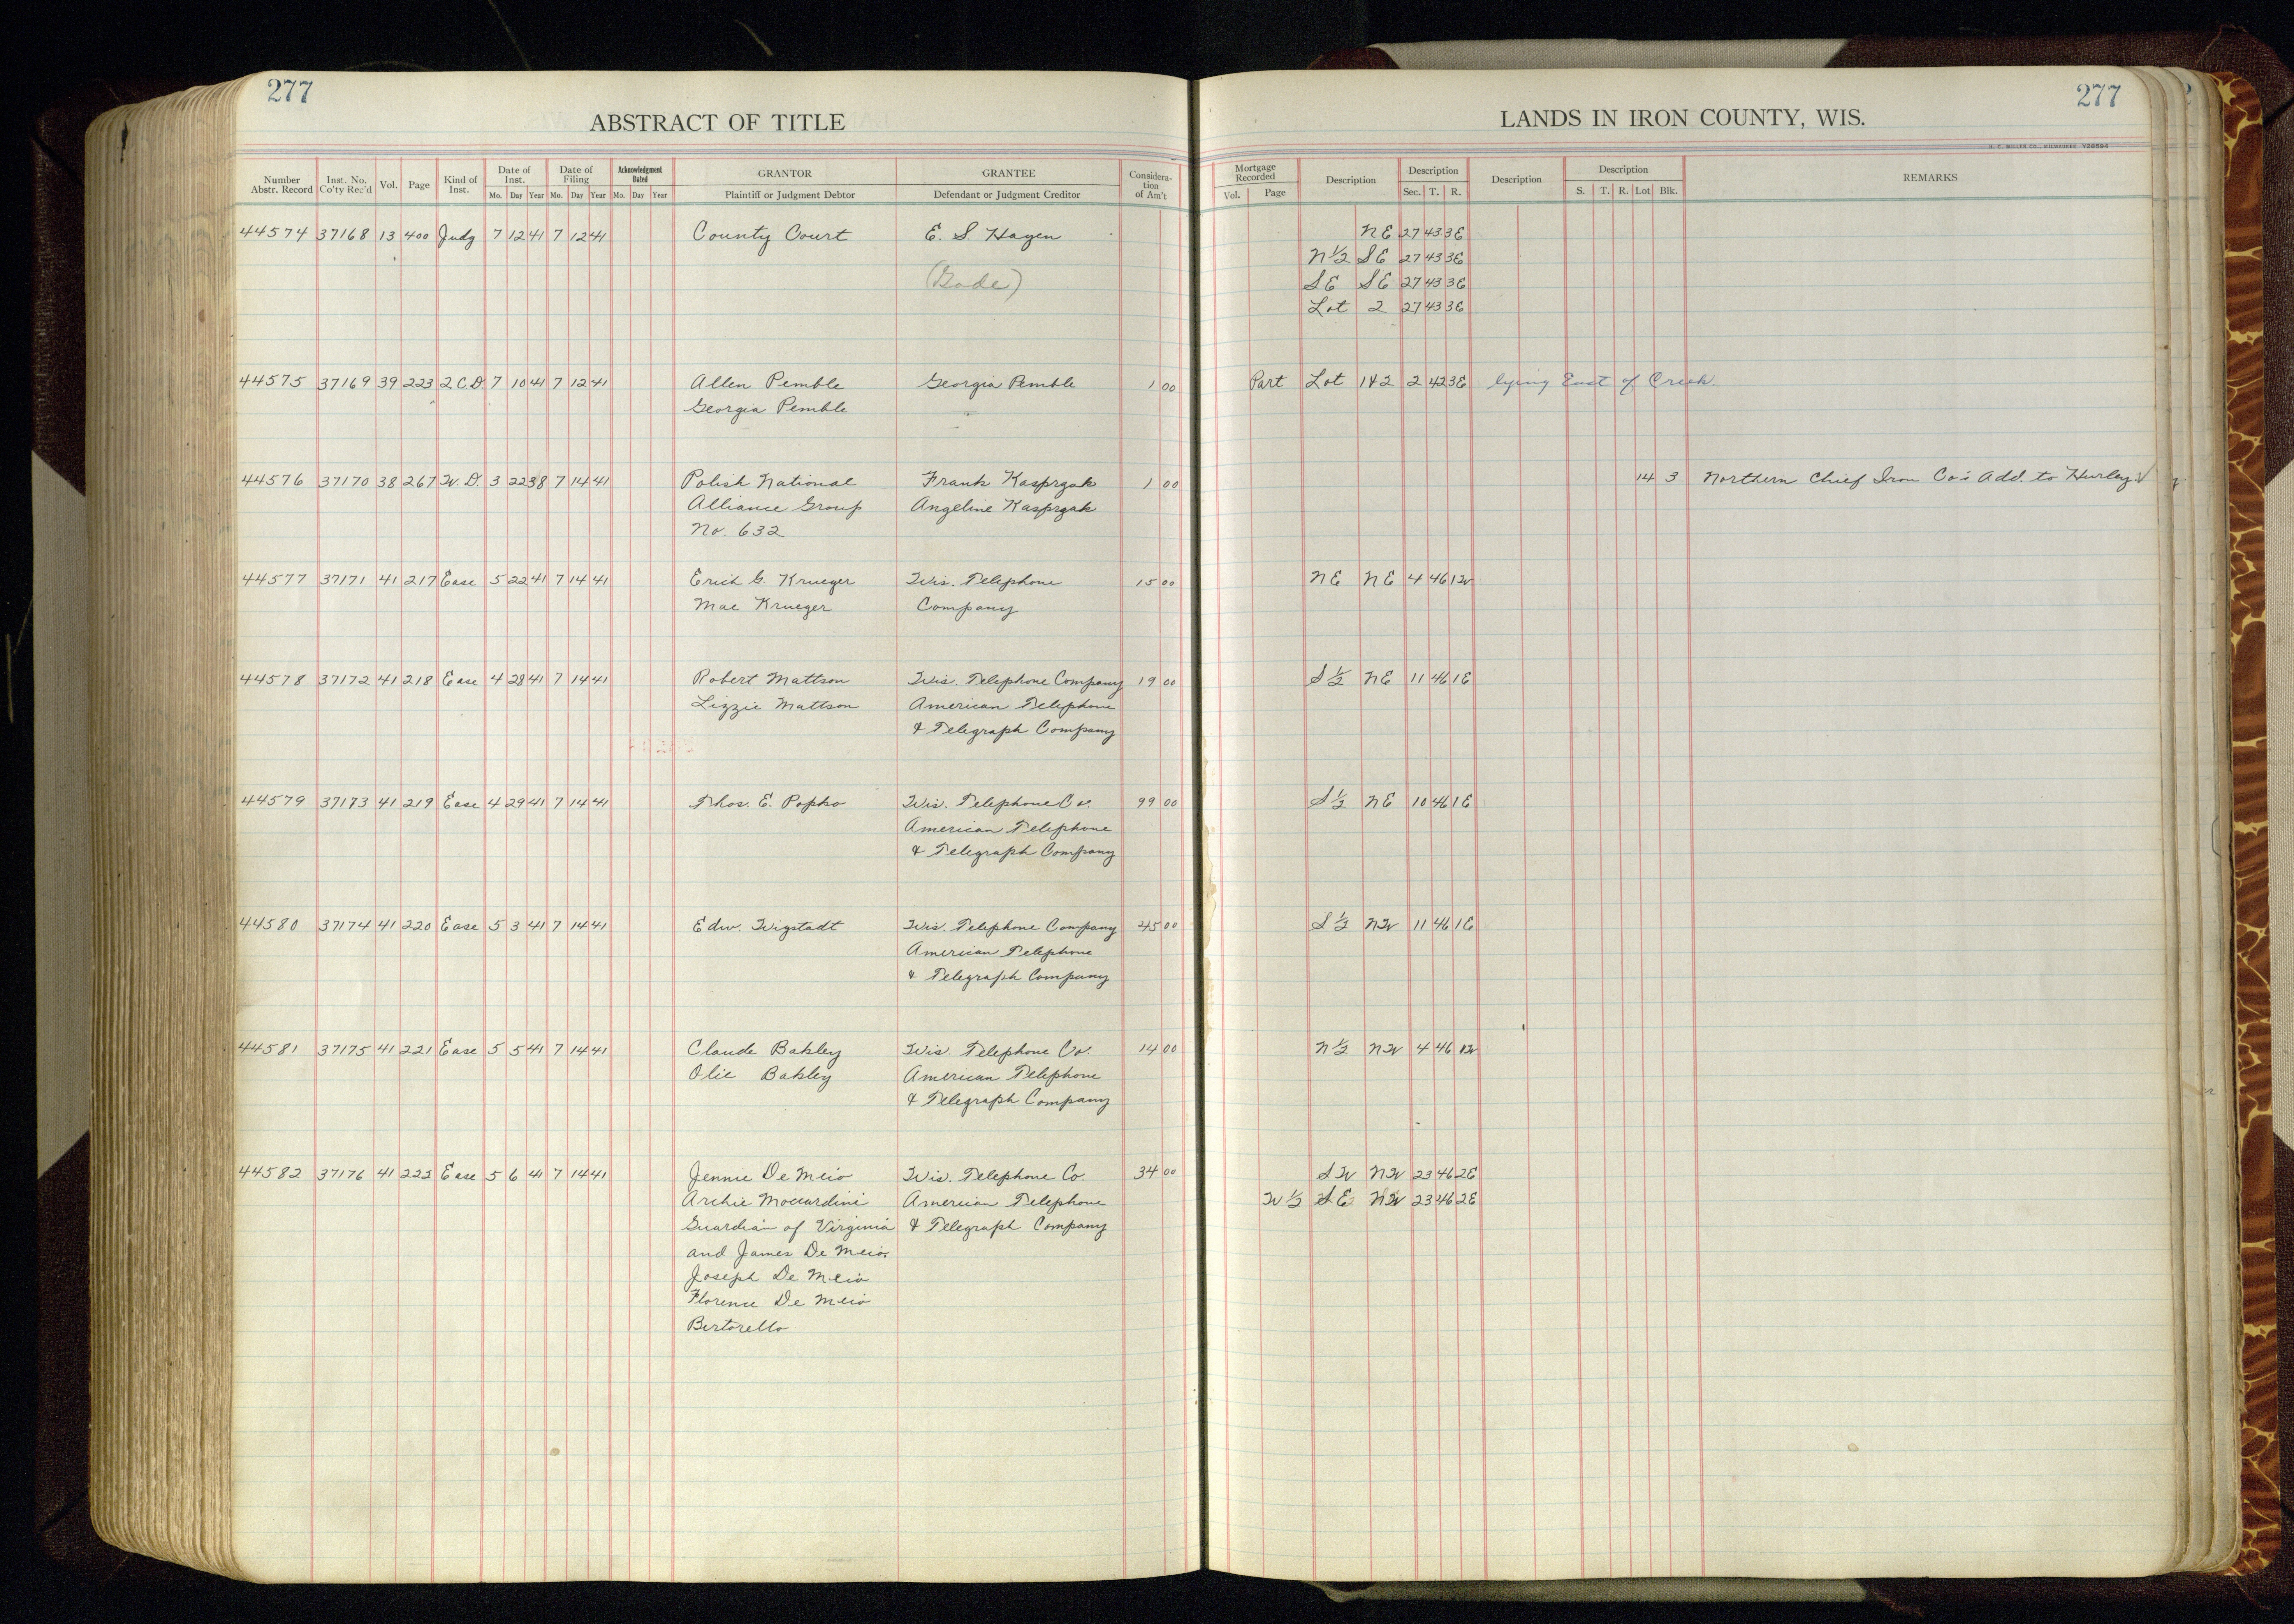 277
ABSTRACT OF TITLE
Number Abstr. Record | Inst. No. Co'ty Rec'd | Vol. | Page | Kind of Inst. | Date of Inst. Mo. Day Year | Date of Filing Mo. Day Year | Acknowledgment Dated Mo. Day Year | GRANTOR Plaintiff or Judgment Debtor | GRANTEE Defendant or Judgment Creditor | Considera-tion of Am't
44574 37168 13 400 Judg 7 12 41 7 12 41 County Court E. S. Hagen
(Gade)
44575 37169 39 223 2 C.D. 7 10 41 7 12 41 Allen Pemble Georgia Pemble 1 00
Georgia Pemble
44576 37170 38 267 W.D. 3 22 38 7 14 41 Polish National Frank Kasprzak 1 00
Alliance Group Angeline Kasprzak
No. 632
44577 37171 41 217 Ease 5 22 41 7 14 41 Erich G. Krueger Wis. Telephone 15 00
Mae Krueger Company
44578 37172 41 218 Ease 4 28 41 7 14 41 Robert Mattson Wis. Telephone Company 19 00
Lizzie Mattson American Telephone
& Telegraph Company
44579 37173 41 219 Ease 4 29 41 7 14 41 Thos. E. Popko Wis. Telephone Co. 99 00
American Telephone
& Telegraph Company
44580 37174 41 220 Ease 5 3 41 7 14 41 Edw. Wigstadt Wis. Telephone Company 45 00
American Telephone
& Telegraph Company
44581 37175 41 221 Ease 5 5 41 7 14 41 Claude Bakley Wis. Telephone Co. 14 00
Olie Bakley American Telephone
& Telegraph Company
44582 37176 41 222 Ease 5 6 41 7 14 41 Jennie De Meio Wis. Telephone Co. 34 00
Archie Moccardini American Telephone
Guardian of Virginia & Telegraph Company
and James De Meio.
Joseph De Meio
Florence De Meio
Bertorello
277
LANDS IN IRON COUNTY, WIS.
H. C. MILLER CO., MILWAUKEE V38594
Mortgage Recorded Vol. Page | Description | Description Sec. T. R. | Description | Description S. T. R. Lot Blk. | REMARKS
NE 27 43 3E
N½ SE 27 43 3E
SE SE 27 43 3E
Lot 2 27 43 3E
Part Lot 1&2 2 42 3E lying East of Creek.
14 3 Northern Chief Iron Co's Add. to Hurley
NE NE 4 46 1W
S½ NE 11 46 1E
S½ NE 10 46 1E
S½ NW 11 46 1E
N½ NW 4 46 1W
SW NW 23 46 2E
W½ SE NW 23 46 2E